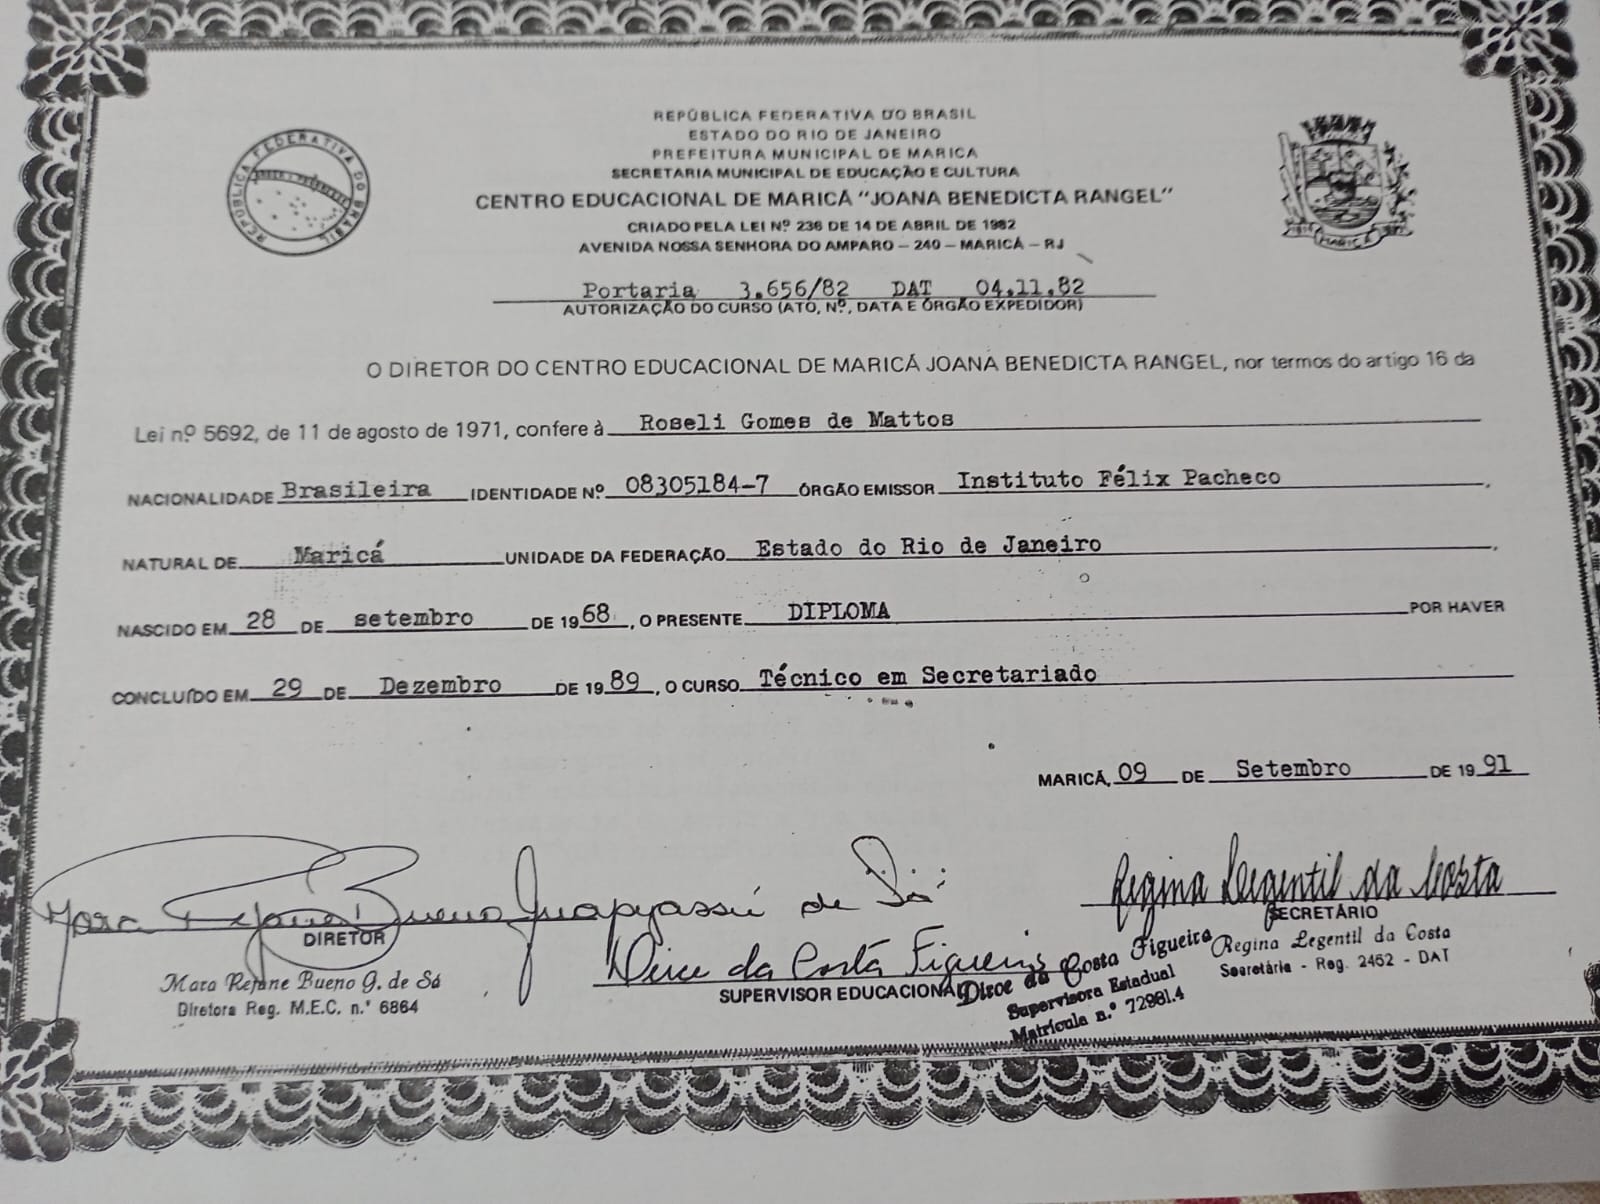 REPÚBLICA FEDERATIVA DO BRASIL
REPÚBLICA FEDERATIVA DO BRASIL
ESTADO DO RIO DE JANEIRO
PREFEITURA MUNICIPAL DE MARICA
SECRETARIA MUNICIPAL DE EDUCAÇÃO E CULTURA
CENTRO EDUCACIONAL DE MARICÁ "JOANA BENEDICTA RANGEL"
CRIADO PELA LEI Nº 236 DE 14 DE ABRIL DE 1982
AVENIDA NOSSA SENHORA DO AMPARO – 240 – MARICÁ – RJ
MARICÁ
Portaria 3.656/82 DAT 04.11.82
AUTORIZAÇÃO DO CURSO (ATO, Nº, DATA E ÓRGÃO EXPEDIDOR)
O DIRETOR DO CENTRO EDUCACIONAL DE MARICÁ JOANA BENEDICTA RANGEL, nor termos do artigo 16 da
Lei nº 5692, de 11 de agosto de 1971, confere à Roseli Gomes de Mattos
NACIONALIDADE Brasileira IDENTIDADE Nº 08305184-7 ÓRGÃO EMISSOR Instituto Félix Pacheco
NATURAL DE Maricá UNIDADE DA FEDERAÇÃO Estado do Rio de Janeiro
NASCIDO EM 28 DE setembro DE 1968, O PRESENTE DIPLOMA POR HAVER
CONCLUÍDO EM 29 DE Dezembro DE 1989, O CURSO Técnico em Secretariado
MARICÁ, 09 DE Setembro DE 1991
Mara Rejane Bueno Guapyassú de Sá
DIRETOR
Mara Rejane Bueno G. de Sá
Diretora Reg. M.E.C. n.º 6864
Dirce da Costa Figueira
SUPERVISOR EDUCACIONAL
Dirce da Costa Figueira
Supervisora Estadual
Matrícula n.º 72981.4
Regina Legentil da Costa
SECRETÁRIO
Regina Legentil da Costa
Secretária - Reg. 2452 - DAT